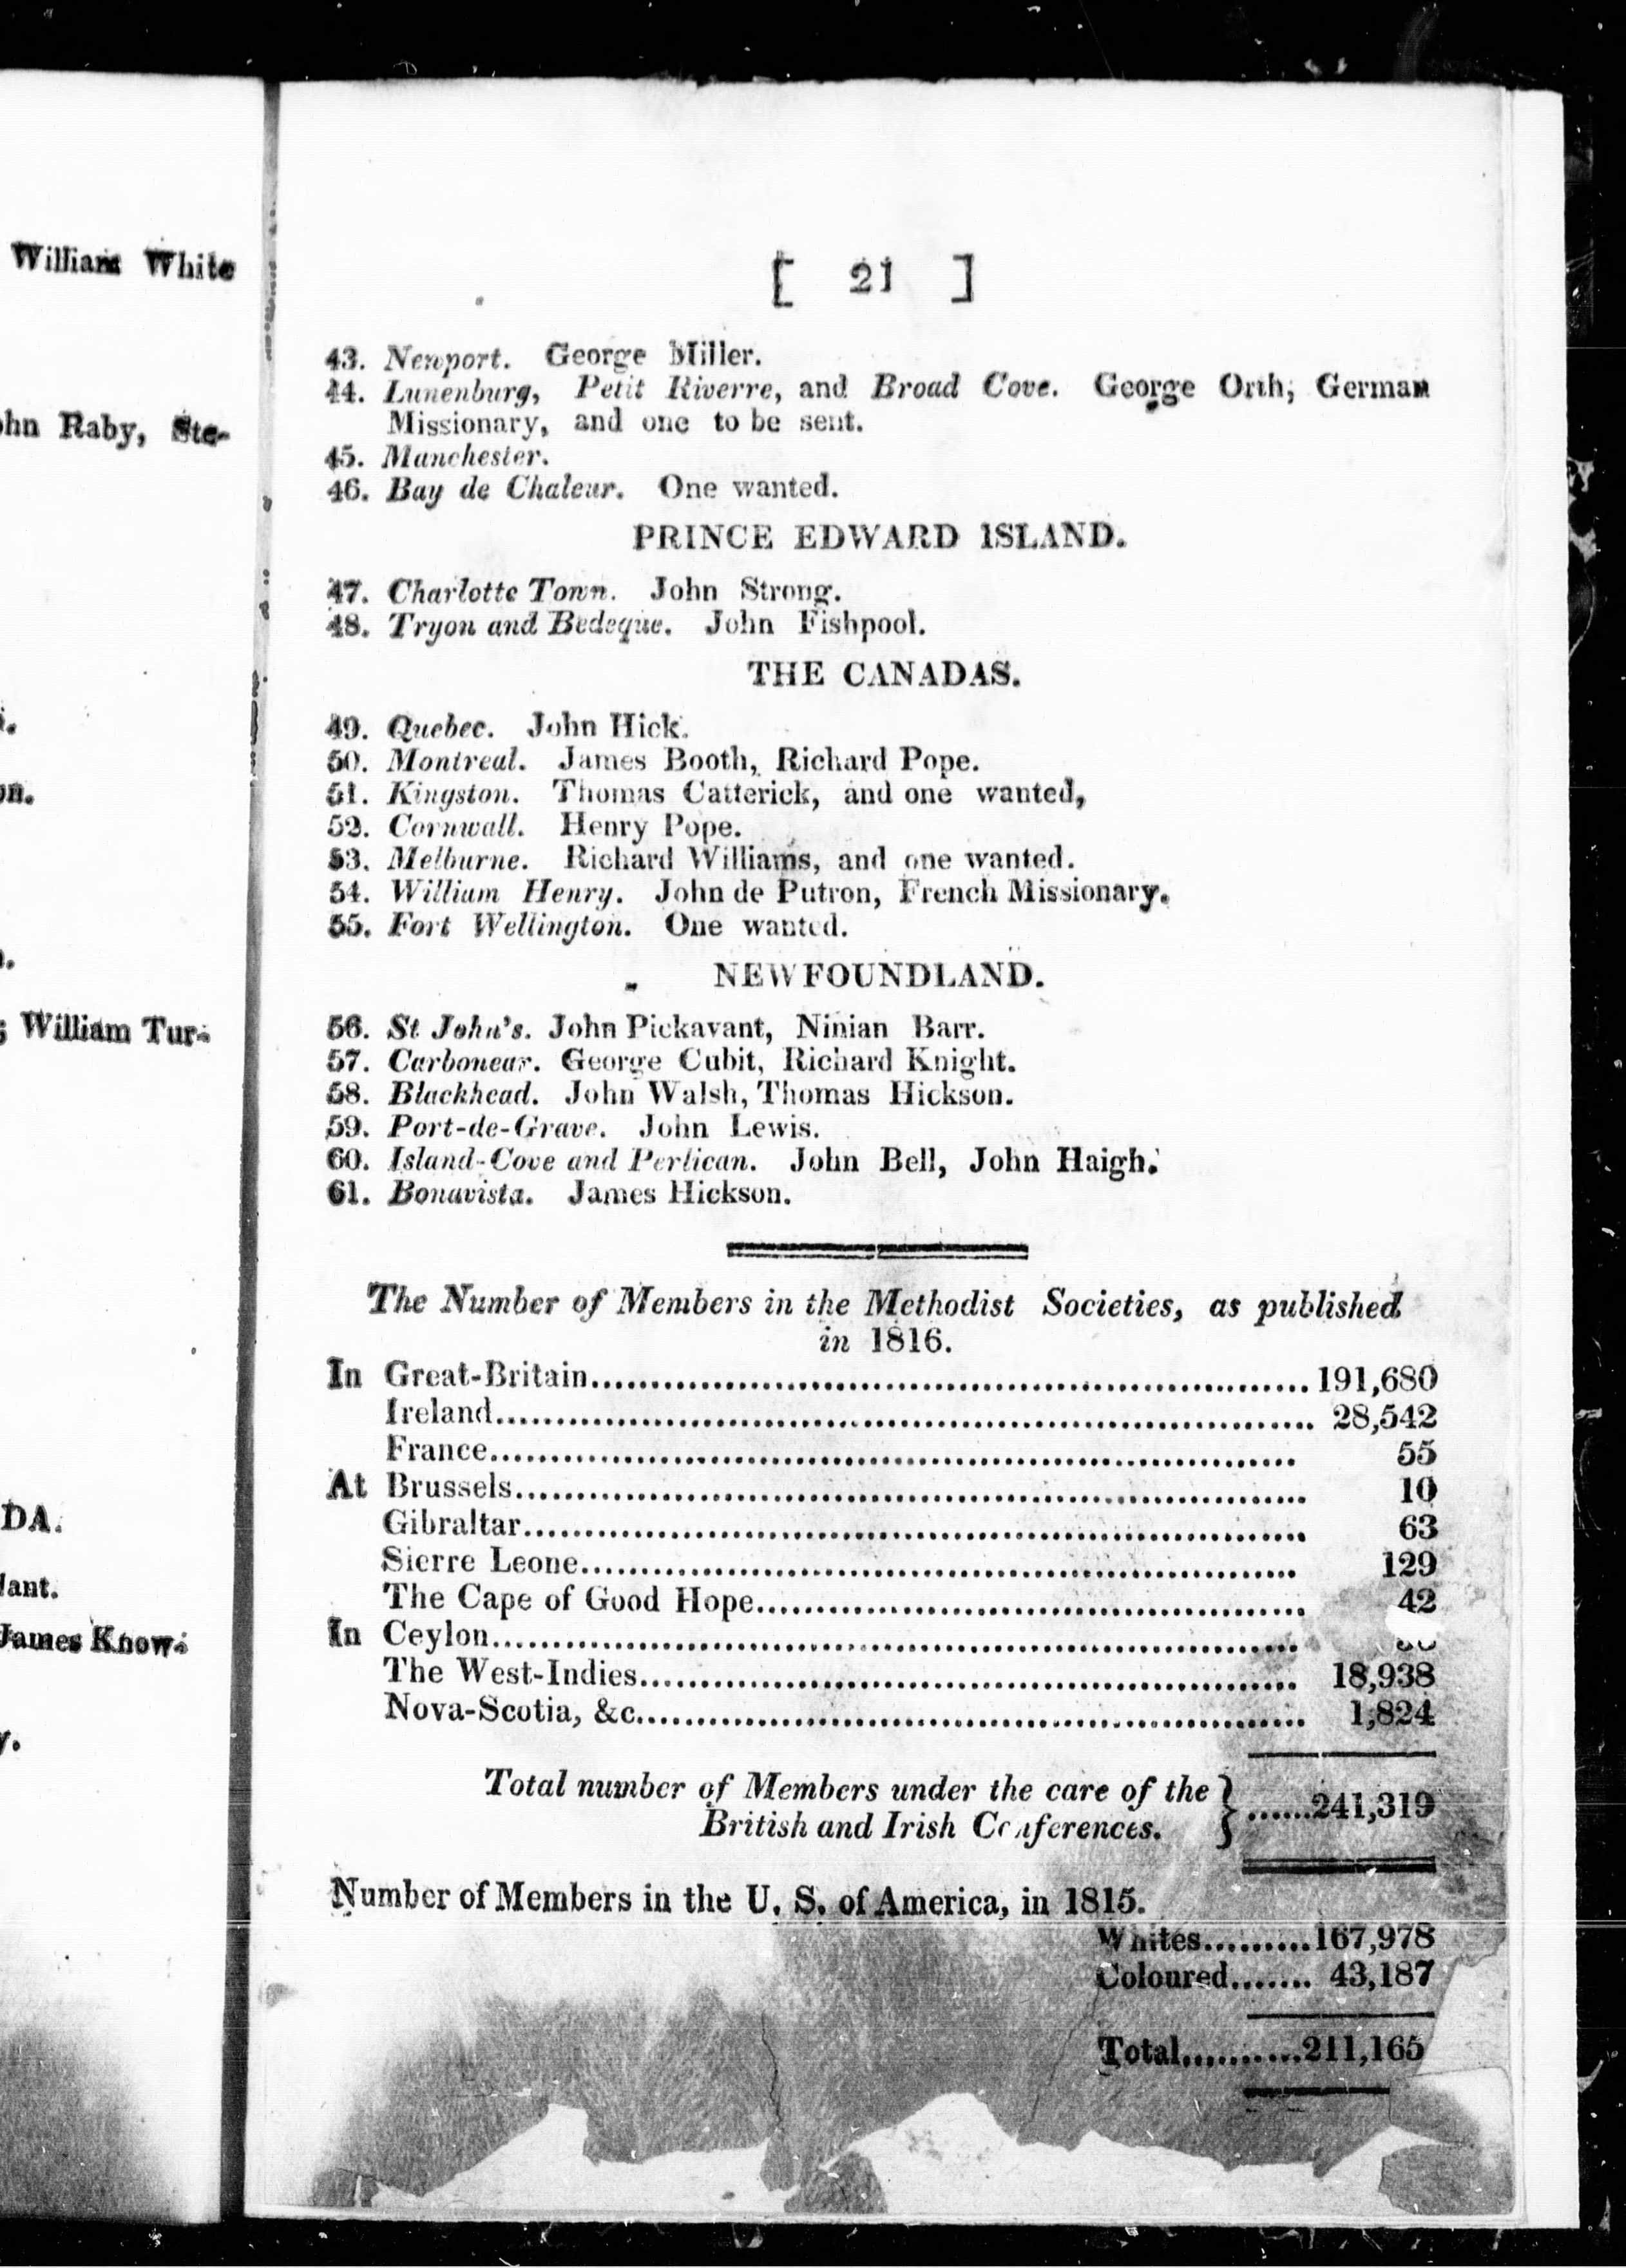 William White
ohn Raby, Ste-
on.
; William Tur-
DA.
James Know-
[ 21 ]
43. Newport. George Miller.
44. Lunenburg, Petit Riverre, and Broad Cove. George Orth, German
Missionary, and one to be sent.
45. Manchester.
46. Bay de Chaleur. One wanted.
PRINCE EDWARD ISLAND.
47. Charlotte Town. John Strong.
48. Tryon and Bedeque. John Fishpool.
THE CANADAS.
49. Quebec. John Hick.
50. Montreal. James Booth, Richard Pope.
51. Kingston. Thomas Catterick, and one wanted,
52. Cornwall. Henry Pope.
53. Melburne. Richard Williams, and one wanted.
54. William Henry. John de Putron, French Missionary.
55. Fort Wellington. One wanted.
NEWFOUNDLAND.
56. St John's. John Pickavant, Ninian Barr.
57. Carbonear. George Cubit, Richard Knight.
58. Blackhead. John Walsh, Thomas Hickson.
59. Port-de-Grave. John Lewis.
60. Island-Cove and Perlican. John Bell, John Haigh.
61. Bonavista. James Hickson.
The Number of Members in the Methodist Societies, as published
in 1816.
In Great-Britain 191,680
Ireland 28,542
France 55
At Brussels 10
Gibraltar 63
Sierre Leone 129
The Cape of Good Hope 42
In Ceylon
The West-Indies 18,938
Nova-Scotia, &c. 1,824
Total number of Members under the care of the
British and Irish Conferences. } 241,319
Number of Members in the U. S. of America, in 1815.
Whites 167,978
Coloured 43,187
Total 211,165